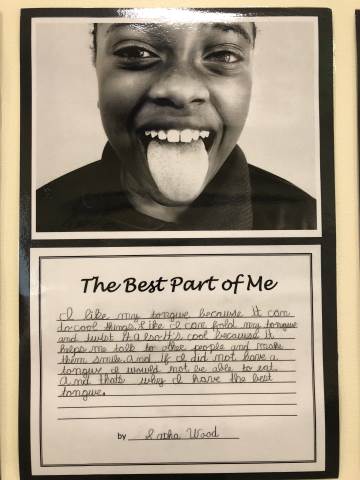 The Best Part of Me
I like my tongue because it can
do cool things. Like I can fold my tongue
and twist it. Also it's cool because it
helps me talk to other people and make
them smile. And if I did not have a
tongue I would not be able to eat.
And thats why I have the best
tongue.
by Wood